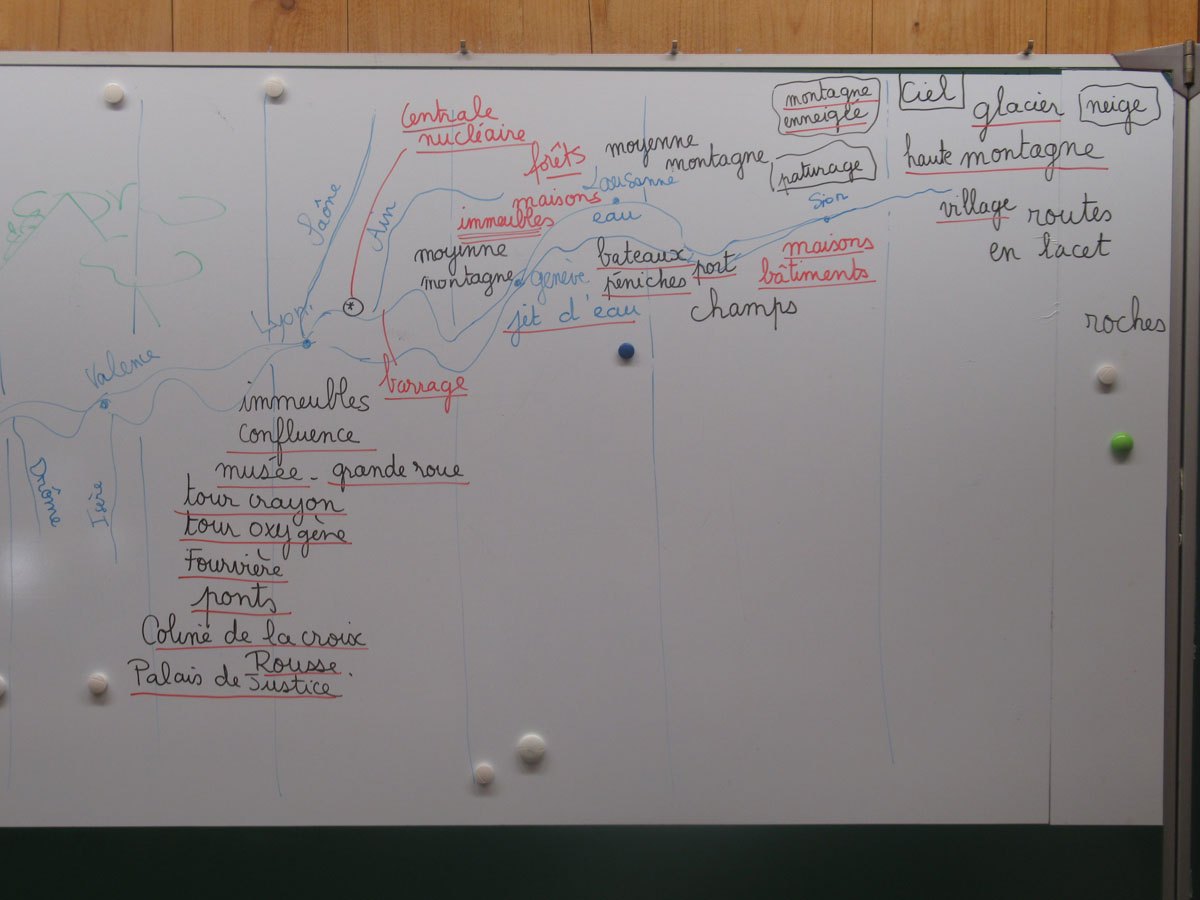 montagne
enneiglé
ciel
glacier
neige
Centrale
nucléaire
forêts
moyenne
montagne
haute montagne
paturage
Saône
Ain
maisons
immeubles
Lausanne
eau
Sion
village
routes
en lacet
moyinne
montagne
Genève
jet d'eau
bateaux
péniches
port
champs
maisons
bâtiments
roches
Lyon
Valence
barrage
Drôme
Isère
immeubles
Confluence
musée - grande roue
tour crayon
tour oxygène
Fourvière
ponts
Coline de la croix
Rousse.
Palais de Justice